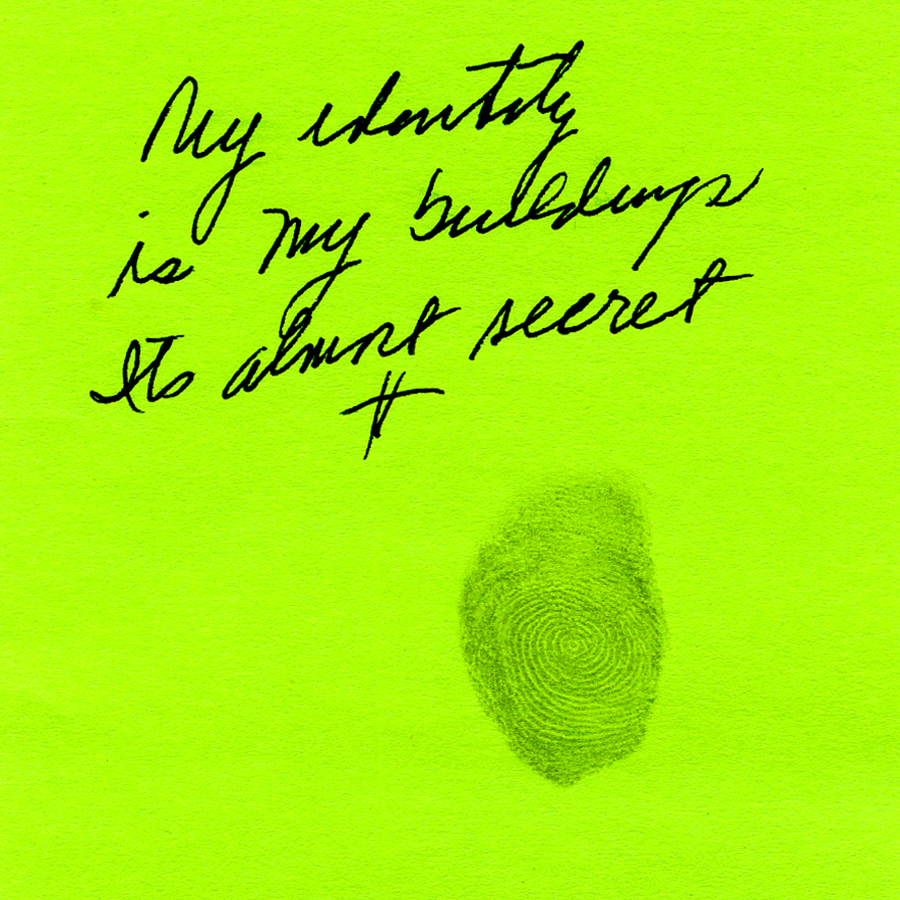 My identity
is my buildings
Its almost secret